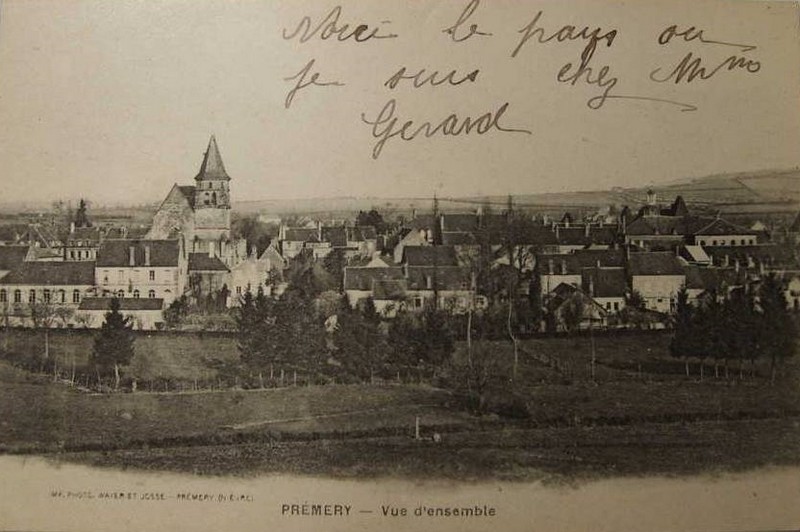 Voici le pays ou
je suis chez Mme
Gerard
PHOTO. ET JOSSE - PRÉMERY
PRÉMERY — Vue d'ensemble